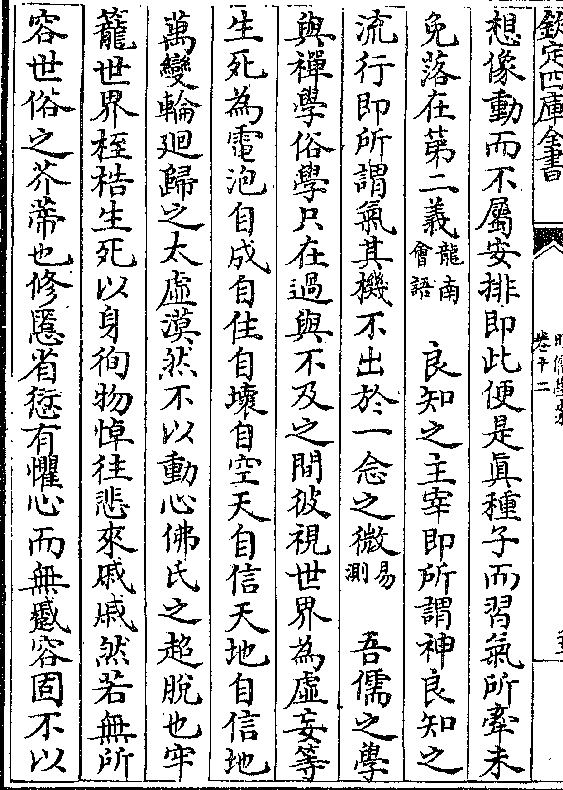 欽定四庫全書
卷十二
想像動而不屬安排即此便是真種子而習氣所牽未
免落在第二義龍南會語　良知之主宰即所謂神良知之
流行即所謂氣其機不出於一念之微易測　吾儒之學
與禪學俗學只在過與不及之間彼視世界為虛妄等
生死為電泡自成自住自壞自空天自信天地自信地
萬變輪廻歸之太虛漠然不以動心佛氏之超脱也牢
籠世界桎梏生死以身徇物悼往悲來戚戚然若無所
容世俗之芥蔕也修慝省愆有懼心而無慼容固不以